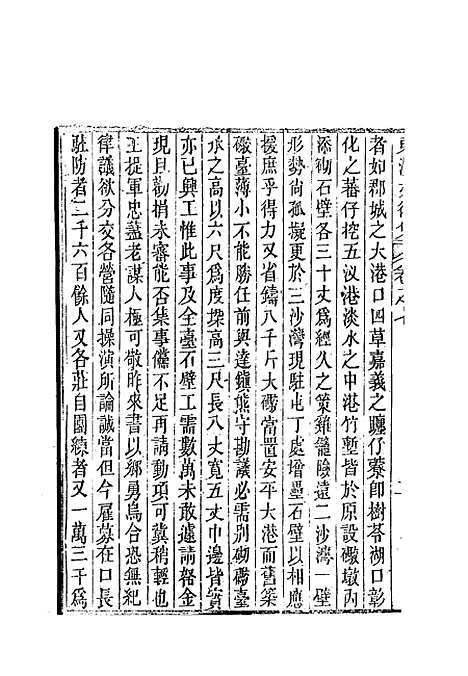 者如郡城之大港口四草嘉義之䑓仔藔卽樹苓湖口彰
化之蕃仔挖五汊港淡水之中港竹塹皆於原設礮墩內
添砌石壁各三十丈爲經久之策雞籠險遠二沙灣一壁
形勢尙孤擬更於三沙灣現駐屯丁處增壘石壁以相應
援庶乎得力又省鑄八千斤大礮當置安平大港而舊築
礮臺薄小不能勝任前與達鎭熊守勘議必需別砌礮臺
水之高以六尺爲度垜高三尺長八丈寬五丈中邊皆實
亦已興工惟此事及全臺石壁工需數萬未敢遽請帑金
現且勸捐未審能否集事儻不足再請動項可冀稍輕也
王提軍忠藎老謀人極可敬昨來書以鄕勇烏合恐無紀
律議欲分交各營隨同操演所論誠當但今雇募在口長
駐防者二千六百餘人又各莊自團練者又一萬三千爲